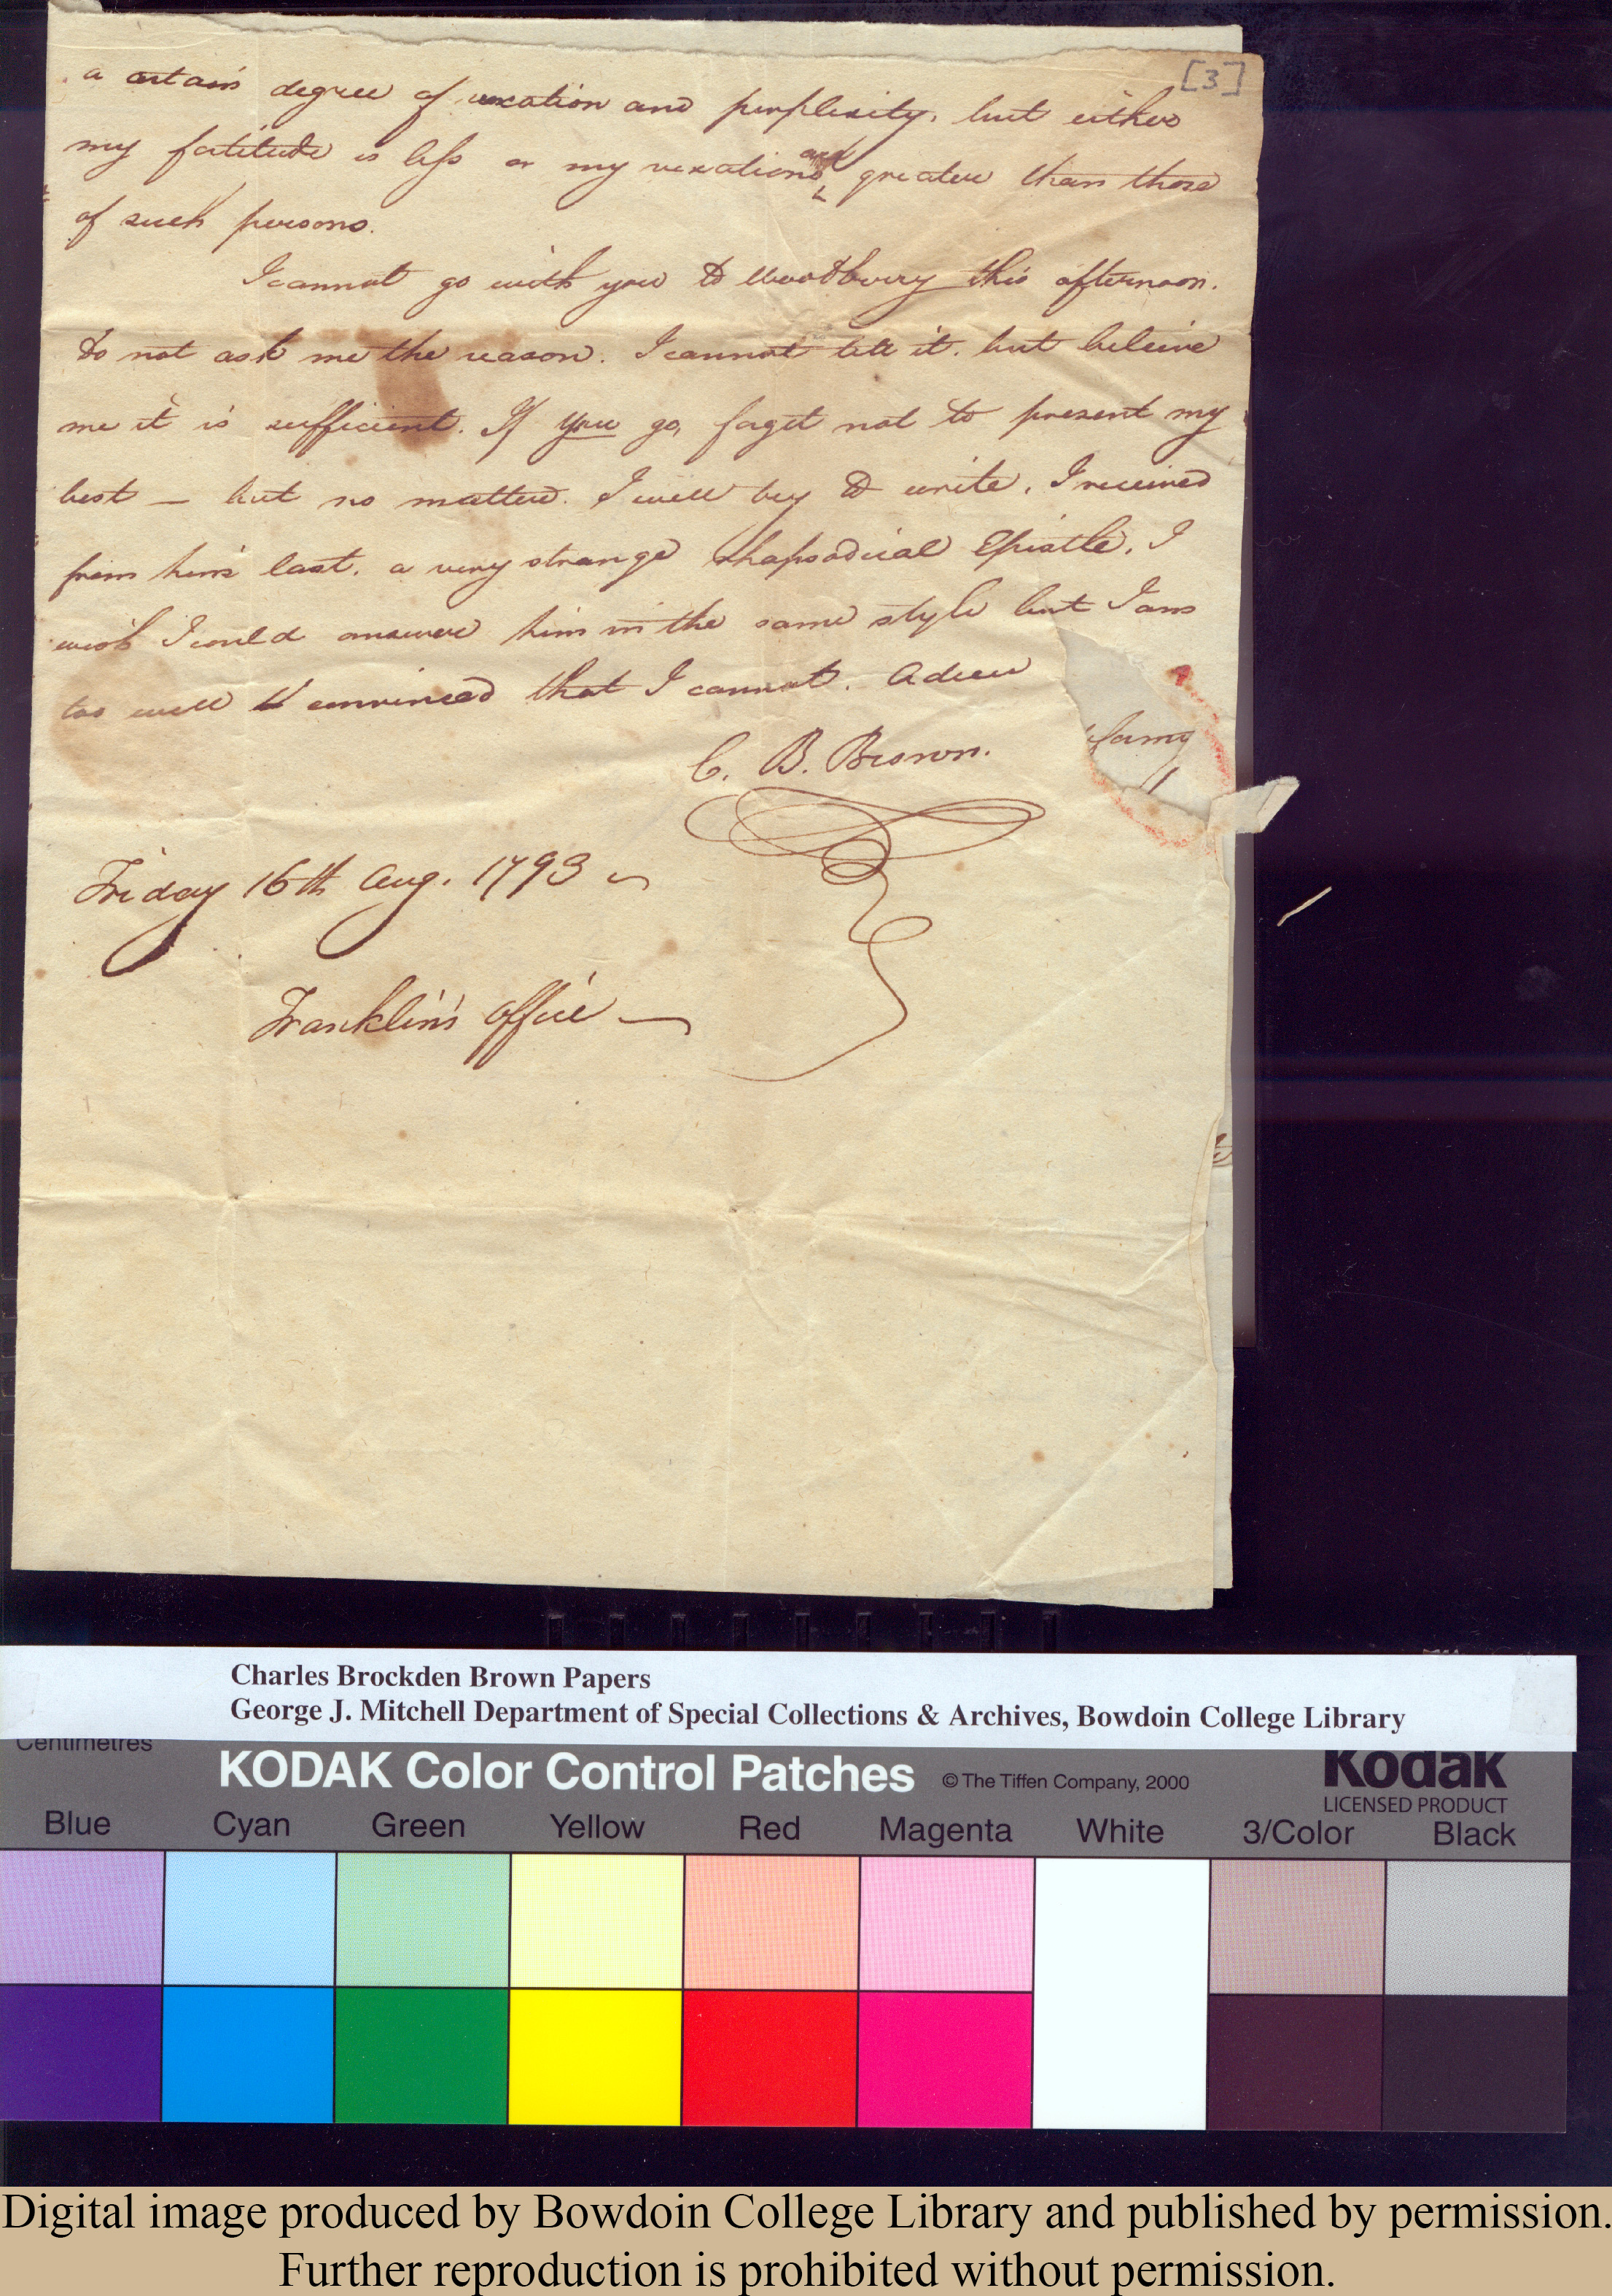 [3]
a certain degree of vexation and perplexity. but either
my fortitude is less or my vexations are greater than those
of such persons.
I cannot go with you to Woodbury this afternoon.
do not ask me the reason. I cannot tell it. but beleive
me it is sufficient. If you go, forget not to present my
best — but no matter. I will try to write. I received
from him last. a very strange rhapsodical Epistle. I
wish I could answer him in the same style but I am
too well convinced that I cannot. Adieu
C. B. Brown.
Friday 16th Aug. 1793
Franklin's office —
Charles Brockden Brown Papers
George J. Mitchell Department of Special Collections & Archives, Bowdoin College Library
Centimetres
KODAK Color Control Patches © The Tiffen Company, 2000 Kodak
LICENSED PRODUCT
Blue Cyan Green Yellow Red Magenta White 3/Color Black
Digital image produced by Bowdoin College Library and published by permission.
Further reproduction is prohibited without permission.